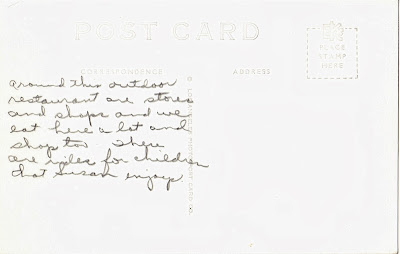 POST CARD
PLACE
STAMP
HERE
CORRESPONDENCE
ADDRESS
around this outdoor
restaurant are stores
and shops and we
eat here a lot and
shop too There
are rides for children
that Susan enjoys